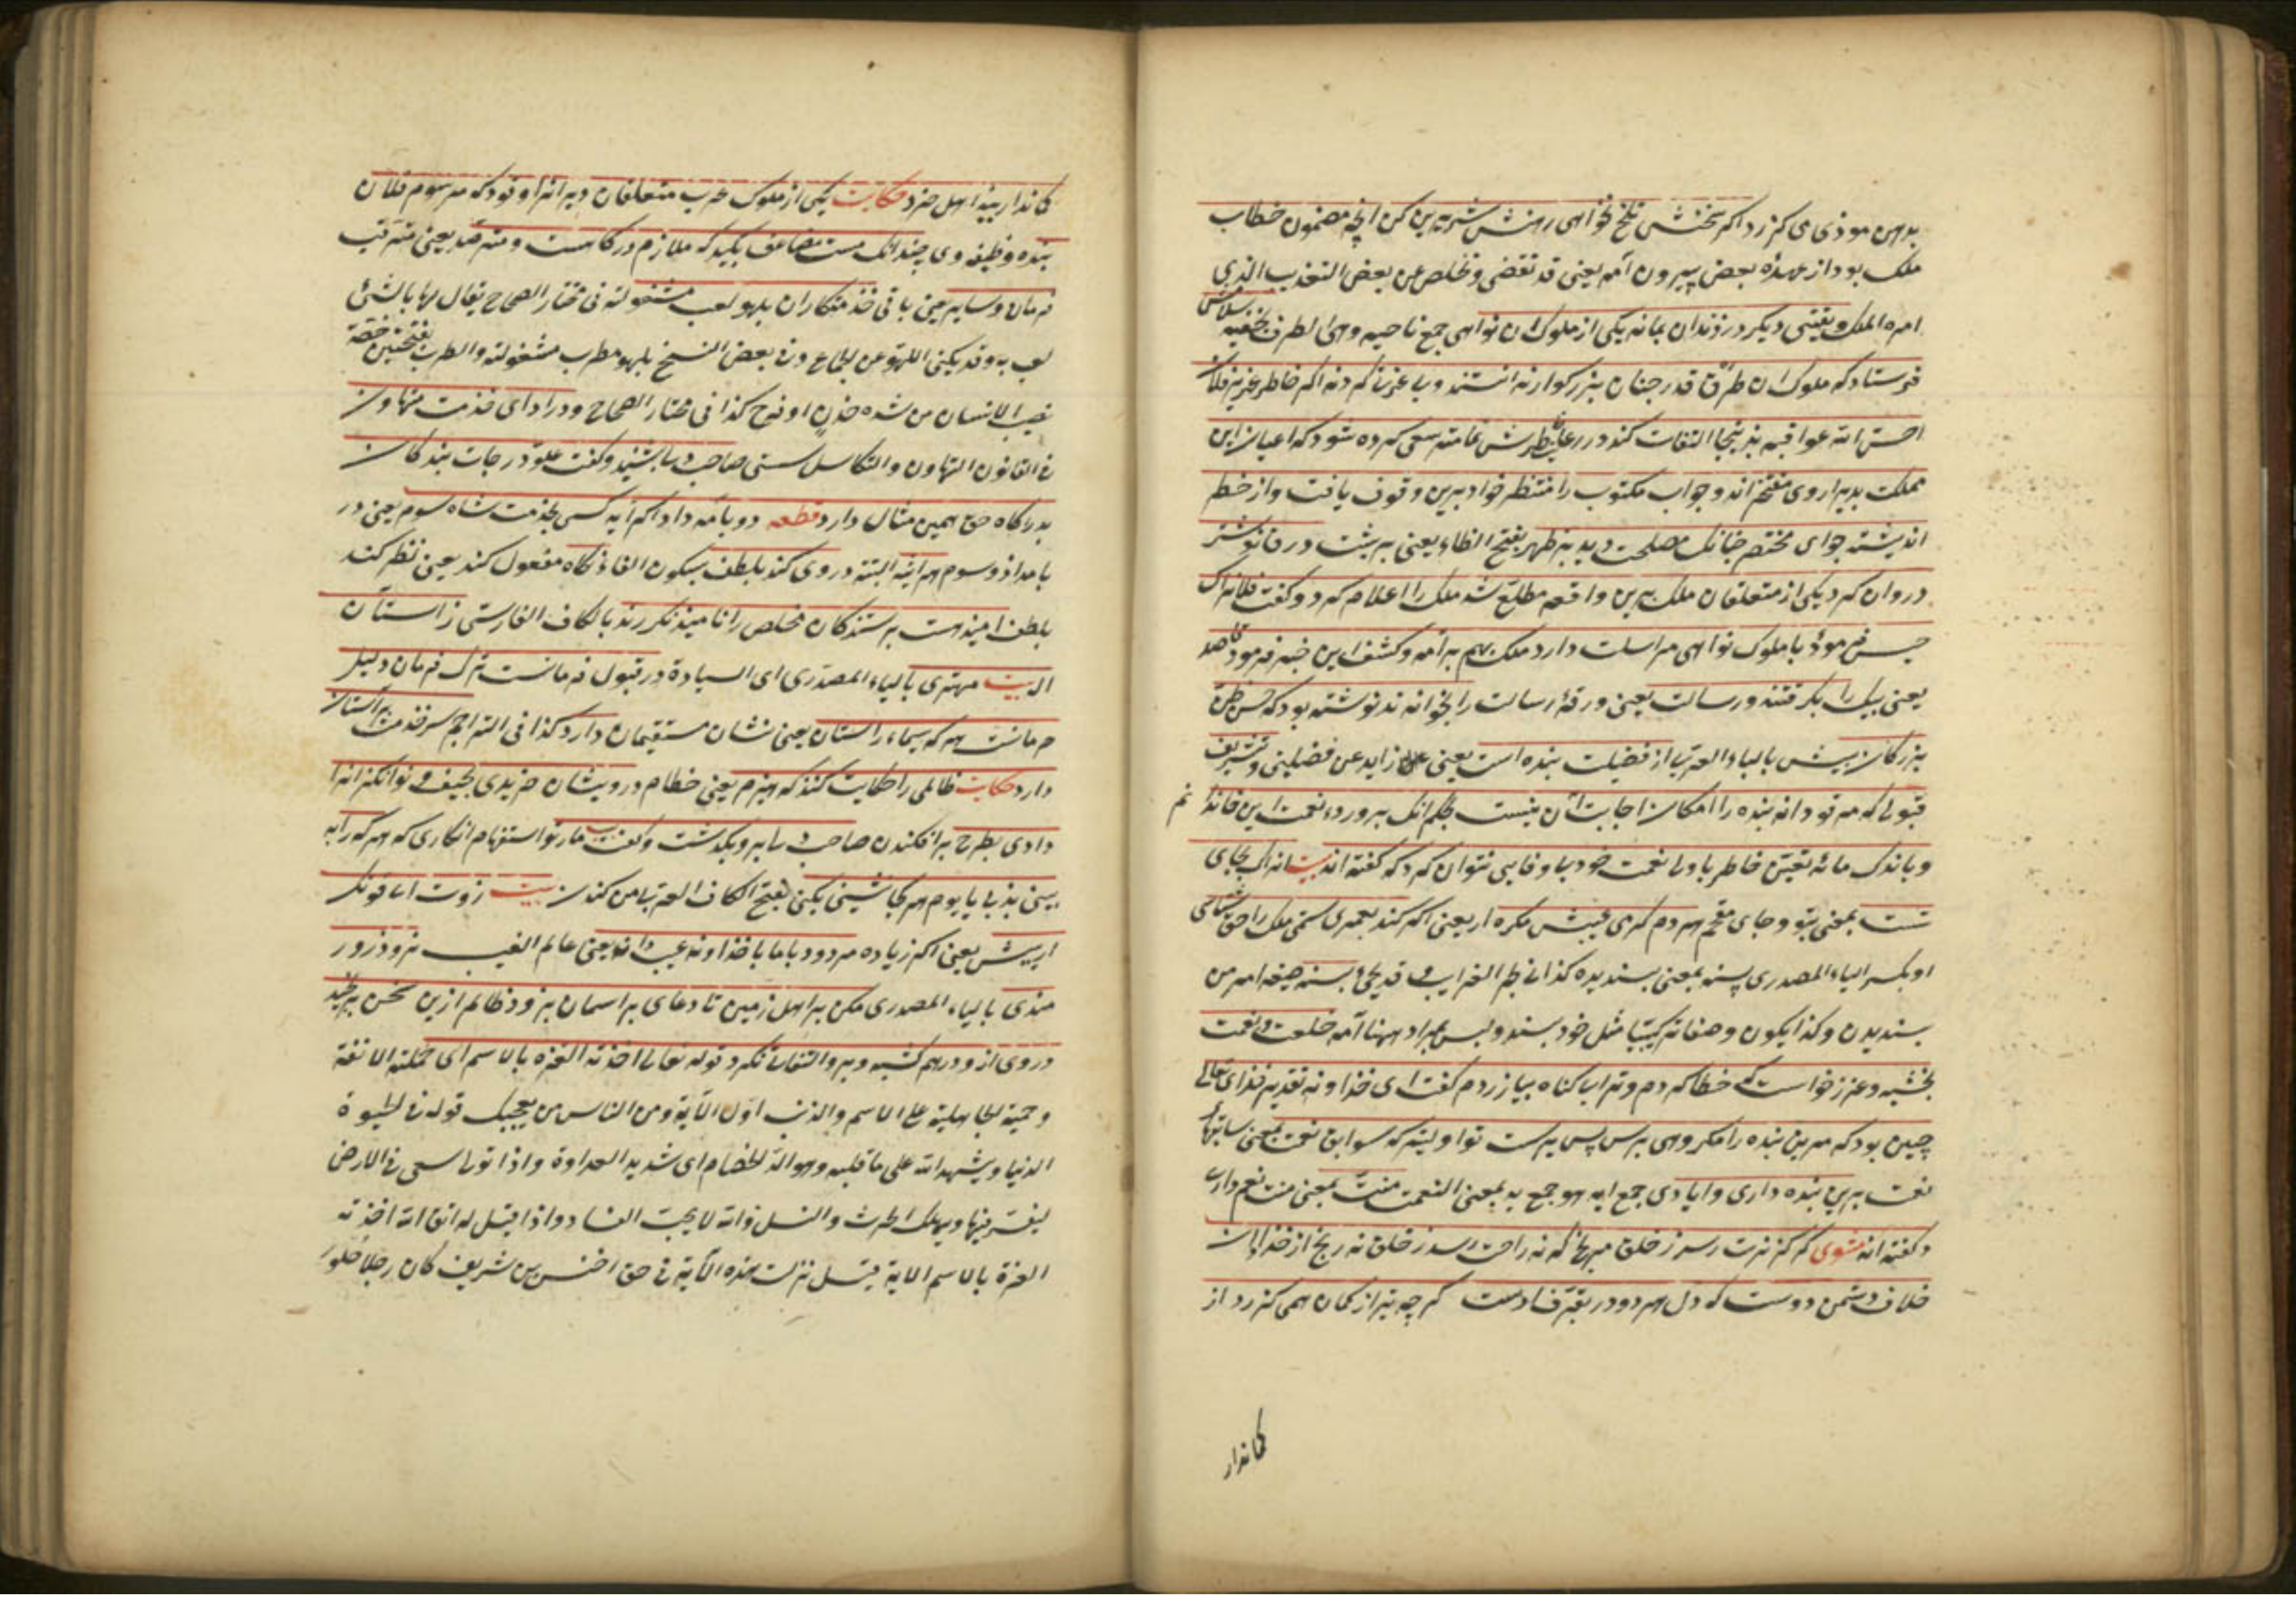 بدهن موذی می کزرد اکر سخنش تلخ نخواهی دهنش شیرین کن آنچه مضمون خطاب
ملک بود از عهدۀ بعض بیرون آمد یعنی قد تقضی وتخلص عن بعض التعذیب الذی
امره الملک دیکر در زندان بماند یکی از ملوک ان نواهی جمع ناحیه وهی الطرف بخفیه
فرستاد که ملوک ان طرف قدر چنان بزرکوار ندانستند وبی عزتی کردند اکر خاطر عزیز فلان
احسن الله عواقبه بدینجا التفات کند در رعایت خاطرش تمامتر سعی کرده شود که اعیان این
مملکت بدیدار وی مفتخراند وجواب مکتوب را منتظر خواجه برین وقوف یافت واز خطر
اندیشید جوابی مختصر چنانک مصلحت دید بر ظهر بفتح الظاء یعنی بر پشت ورق نوشت
وروان کرد یکی از متعلقان ملک برین واقعه مطلع شد ملک را اعلام کرد وکفت فلانرا که
حبس فرمودۀ با ملوک نواهی مراسلت دارد ملک بهم بر آمد وکشف این خبر فرمود قاصد
یعنی پیک را بکرفتند ورسالت یعنی ورقۀ رسالت را بخواندند نوشته بود که حسن ظن
بزرکان بیش بالباء العربی از فضیلت بنده است یعنی زاید عن فضیلتی وتشریف
قبولی که فرمودند بنده را امکان اجابت آن نیست بحکم انک پروردۀ نعمت این خاندانم
وباندک مایه تغیر خاطر با ولی نعمت خود بیوفایی نتوان کرد که کفته اند بیت انرا که بجای
تست بمعنی بتو وجای مقحم هر دم کرمی عذرش بنه ار یعنی اکر کند بعمری ستمی ملک را حق شناسی
او بکسر الیاء المصدری پسند بمعنی پسندیده کذا فی بحر الغرایب وقد یجئ پسند صیغه امر من
پسندیدن وکذا یکون وصفا ترکیبیا مثل خود پسند ولیس بمراد ههنا آمد خلعت ونعمت
بخشید وعذر خواست که خطا کردم وترا بی کناه بیازردم کفت ای خداوند تقدیر خدای تعالی
چنین بود که مرین بنده را مکروهی برسد پس بدست تو اولیتر که سوابق نعمت بمعنی سابقا
نعمت برین بنده داری وایادی جمع اید هو جمع ید بمعنی النعمت منت بمعنی منت نعم داری
وکفته اند مثنوی کر کزندت رسد ز خلق مرنج که نه راحت رسد ز خلق نه رنج از خدا دان
خلاف دشمن ودوست که دل هر دو در تصرف اوست کر چه تیر از کمان همی کزرد از
کماندار
کماندار بیند اهل خرد حکایت یکی از ملوک عرب متعلقان دیوانرا فرمود که مرسوم فلان
بنده وظیفه وی چندانک هست مضاعف بکنید که ملازم درکاهست ومترصد یعنی مترقب
فرمان وسایر یعنی باقی خذمتکاران بلهو ولعب مشغولند فی مختار الصحاح یقال لها بالشئ
لعب به وقد یکنی اللهو عن الجماع وفی بعض النسخ بلهو مطرب مشغولند والطرب بفتحتین خفة
تصیب الانسان من شدة حزن او فرح کذا فی مختار الصحاح ودر ادای خذمت متهاون
فی القانون التهاون والتکاسل سستی صاحب دلی بشنید وکفت علو درجات بندکان
بدرکاه حق همین مثال دارد قطعه دو بامداد اکر آید کسی بخذمت شاه سوم یعنی در
بامداد سوم هر اینه البته در وی کند بلطف بسکون الفاء نکاه مفعول کند یعنی نظر کند
بلطف امیدهست پرستندکان مخلص را نا امید نکردند بالکاف الفارسی ز آستان
اله بیت مهتری بالیاء المصدری ای السیادة در قبول فرمانست ترک فرمان دلیل
حرمانست هر که سیمای راستان یعنی نشان مستقیمان دارد کذا فی التراجم سر خذمت بر آستان
دارد حکایت ظالمی را حکایت کنند که هیزم یعنی حطام درویشان خریدی بحیف وتوانکرانرا
دادی بطرح بر افکندن صاحب دلی برو بکذشت وکفت بیت مار تو استفهام انکاری که هر که را به
بینی بزنی یا بوم هر کجا نشینی بکنی بفتح الکاف العربی من کندن بیت زورت ار با قوتک
ار پیش یعنی اکر زیاده میرود با ما با خداوند غیب دان یعنی عالم الغیب نرود زور
مندی بالیاء المصدری مکن بر اهل زمین تا دعایی بر اسمان نرود ظالم ازین سخن برنجید
وروی ازو درهم کشید وبرو التفات نکرد قوله تعالی اخذته العزة بالاسم ای حملته الانفة
وحمیة الجاهلیة علی الاسم والذنب اول الآیة ومن الناس من یعجبک قوله فی الحیوة
الدنیا ویشهد الله علی ما فی قلبه وهو الد الخصام ای شدید العداوة واذا تولی سعی فی الارض
لیفسد فیها ویهلک الحرث والنسل والله لا یحب الفساد واذا قیل له اتق الله اخذته
العزة بالاسم الایة قیل نزلت هذه الآیة فی حق اخنس بن شریف کان رجلا حلو